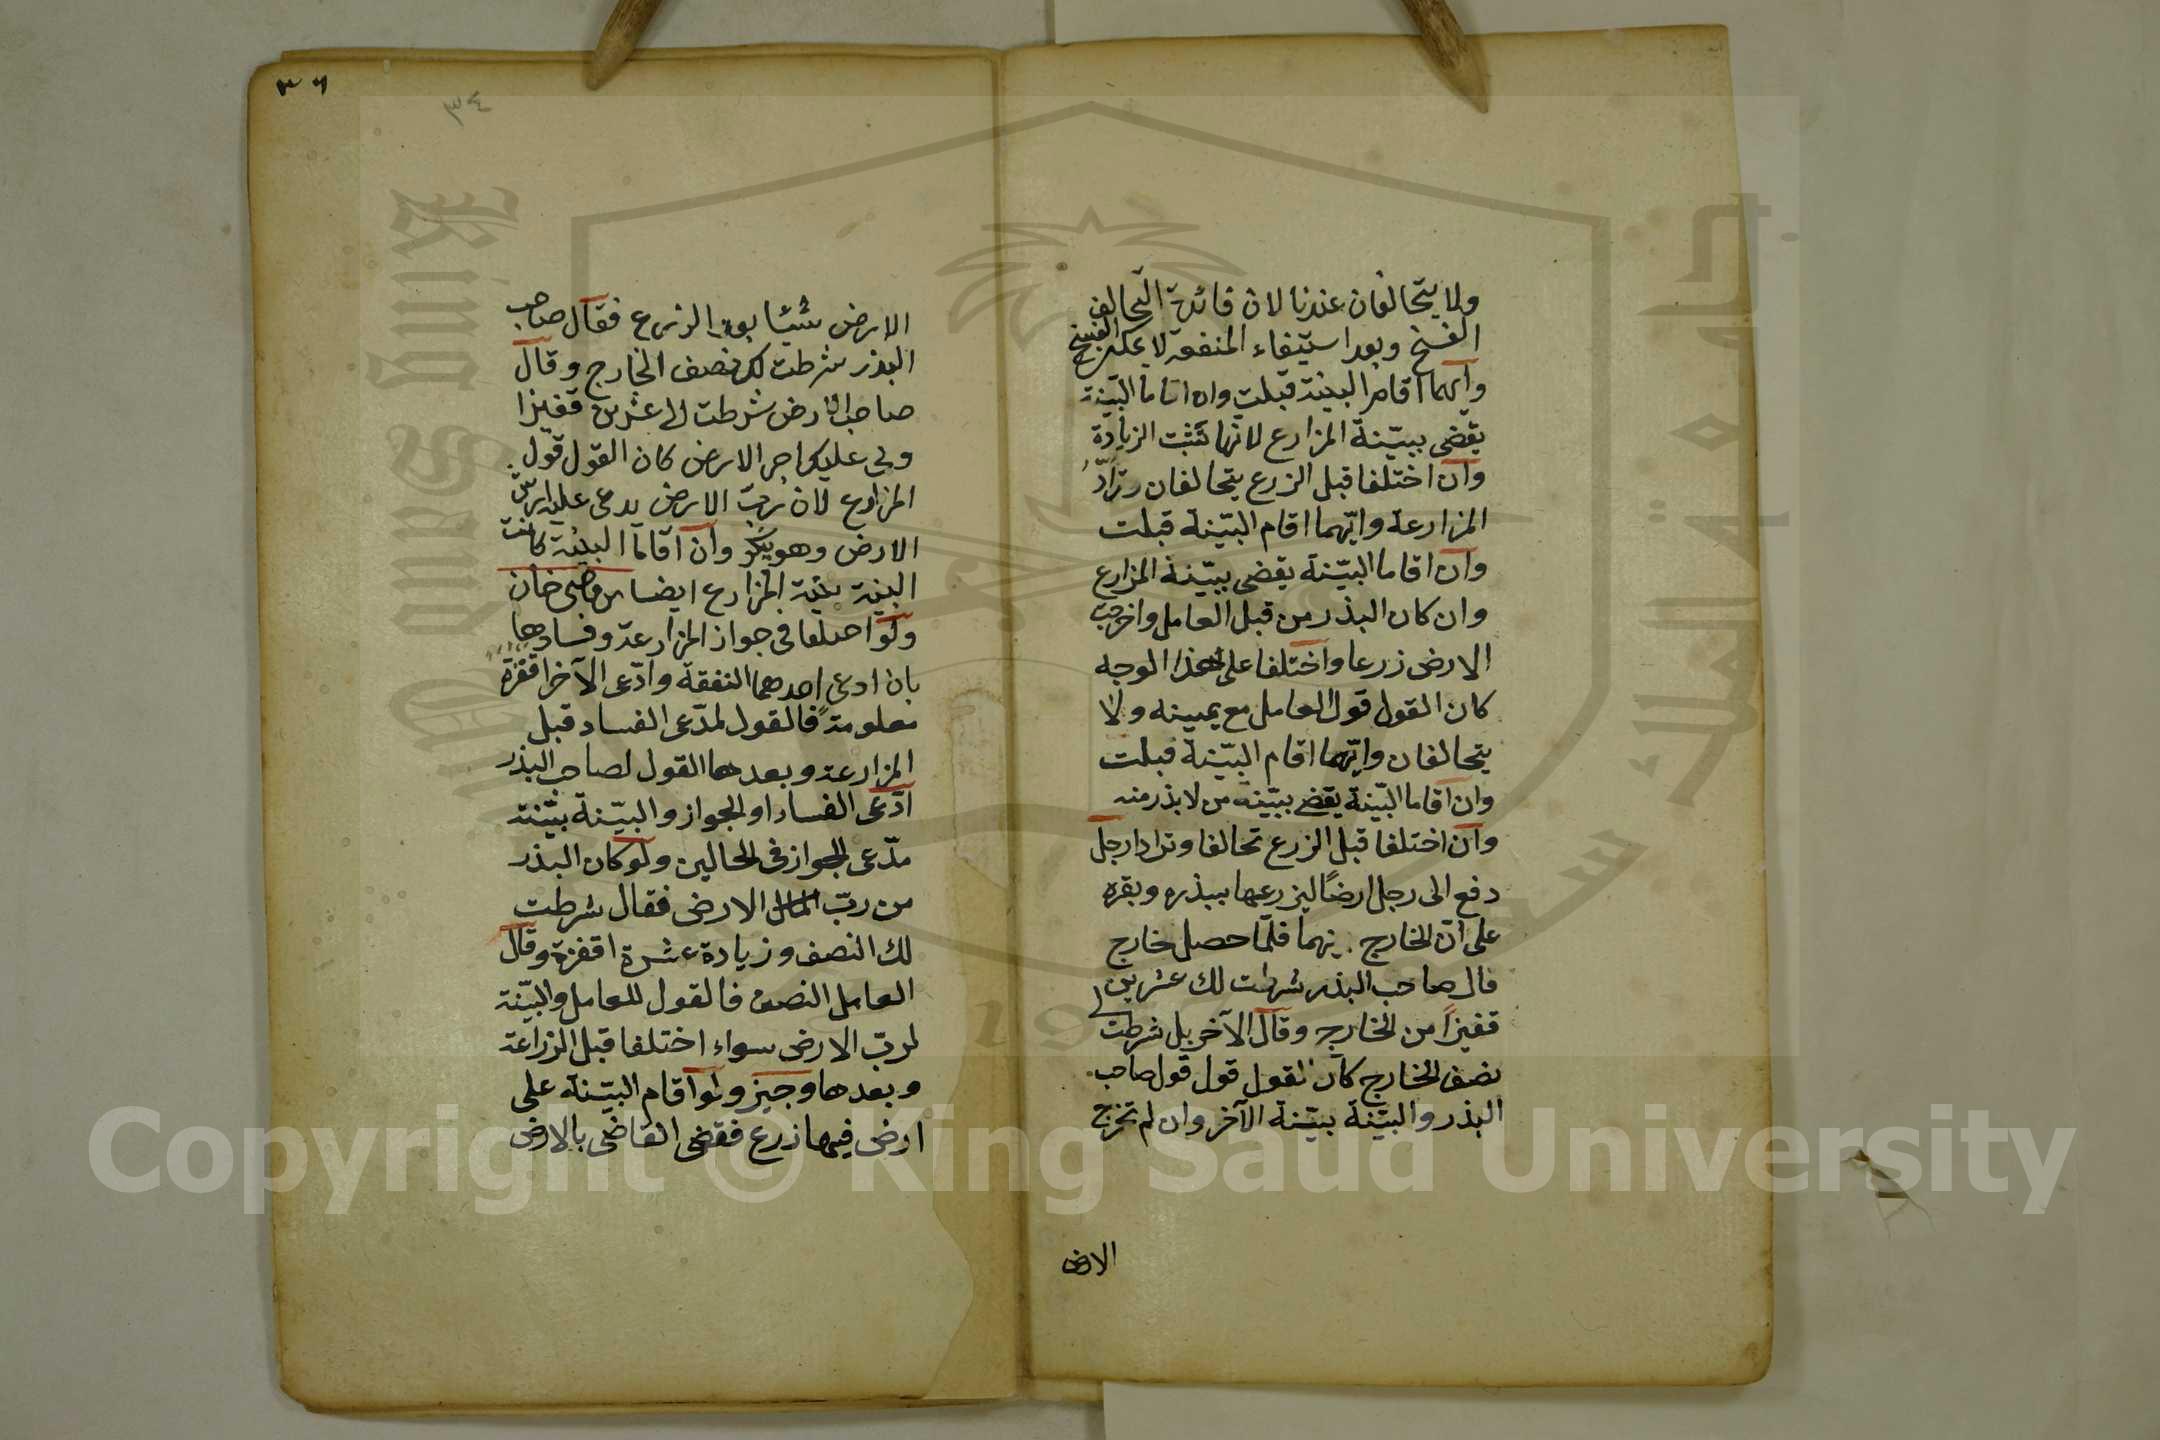 ولا يتحالفان عندنا لان فائدة التحالف
الفسخ وبعد استيفاء المنفعة لا يمكن الفسخ
وايهما اقام البينة قبلت وان اقاما البيّنة
يقضى ببيّنة المزارع لانها تثبت الزيادة
وان اختلفا قبل الزرع يتحالفان وترادّ
المزارعة وايّهما اقام البيّنة قبلت
وان اقاما البيّنة يقضى ببيّنة المزارع
وان كان البذر من قبل العامل واخرجت
الارض زرعا واختلفا على هذا الوجه
كان القول قول العامل مع يمينه ولا
يتحالفان وايّهما اقام البيّنة قبلت
وان اقاما البيّنة يقضى ببيّنة من لا بذر منه
وان اختلفا قبل الزرع تحالفا وترادا رجل
دفع الى رجل ارضًا ليزرعها ببذره وبقره
على انّ الخارج بينهما فلمّا حصل الخارج
قال صاحب البذر شرطت لك عشرين
قفيزًا من الخارج وقال الآخر بل شرطت لى
نصف الخارج كان القول قول قول صاحب
البذر والبيّنة بيّنة الآخر وان لم تخرج
الارض
٣٦
٣٤
الارض شيئا بعد الزرع فقال صاحب
البذر شرطت لك نصف الخارج وقال
صاحب الارض شرطت لى عشرين قفيزا
ولى عليك اجر الارض كان القول قول
المزارع لان ربّ الارض يدعى عليه اجر
الارض وهو ينكر وان اقاما البينة كانت
البينة بينة المزارع ايضا من قاضى خان
ولو اختلفا فى جواز المزارعة وفسادها
بان ادعى احدهما النصفة وادّعى الآخر اقفزة
معلومة فالقول لمدّعى الفساد قبل
المزارعة وبعدها القول لصاحب البذر
ادّعى الفساد او الجواز والبيّنة بيّنة
مدّعى الجواز فى الحالين ولو كان البذر
من ربّ الارض فقال شرطت
لك النصف وزيادة عشرة اقفزة وقال
العامل النصف فالقول للعامل والبيّنة
لربّ الارض سواء اختلفا قبل الزراعة
وبعدها وجيز ولو اقام البيّنة على
ارض فيها زرع فقضى القاضى بالارض
Copyright © King Saud University
King Saud University
جامعة الملك سعود